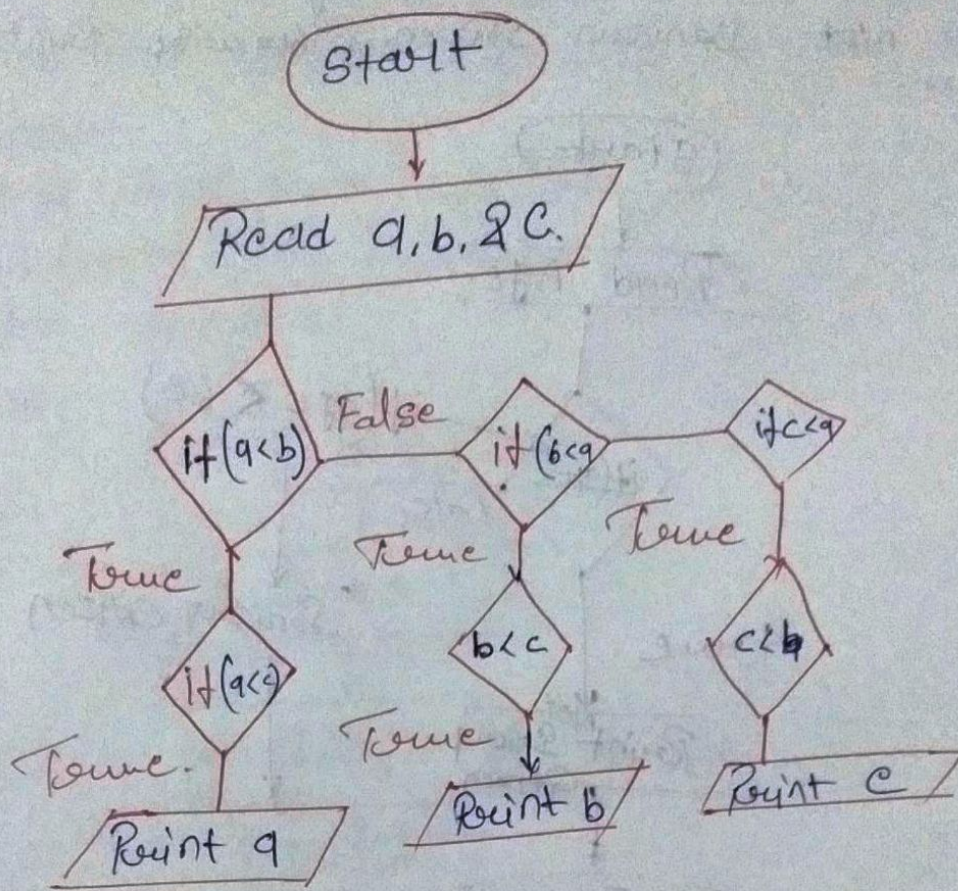 Start
Read a, b, & c.
if (a<b)
False
if (b<a
if c<a
True
True
True
if (a<c)
b<c
c<b
True.
True
Print a
Print b
Print c